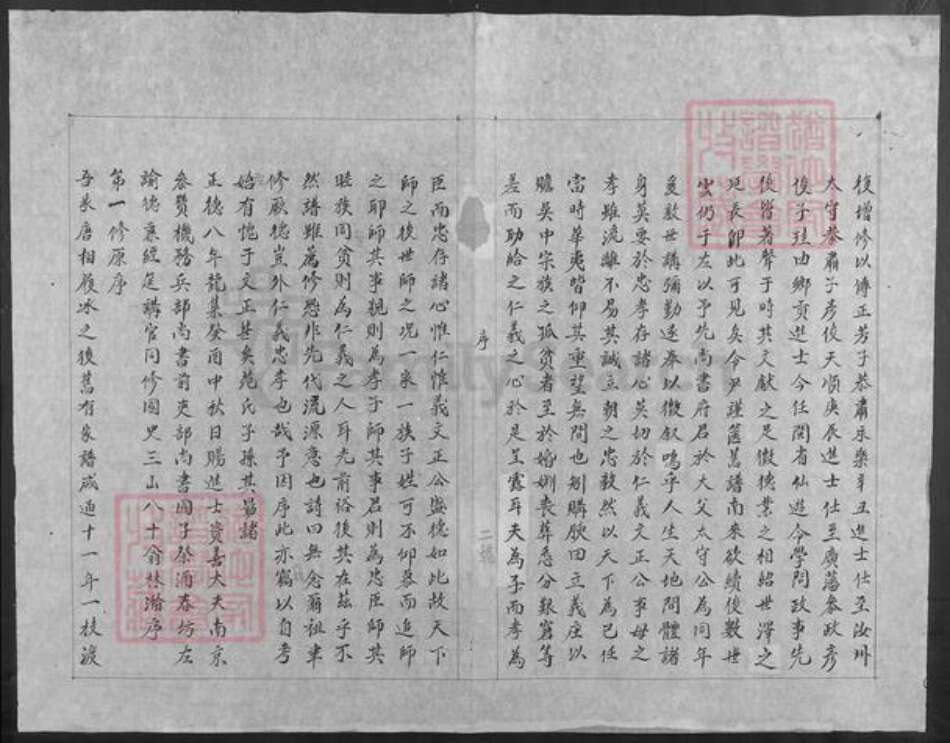 復增修以傳正芳子恭肅永樂辛丑進士仕至汝州
太守恭肅子彥俊天順庚辰進士仕至廣藩參政彥
俊子珪由鄉貢進士今任閩省仙遊令學問政事先
後皆著聲于時其文獻之足徵德業之相紹世澤之
延長即此可見矣今尹謹篋舊譜南來欲續後數世
雲仍于左以予先尚書府君於大父太守公為同年
爰敘世講彌勤遂奉以徵叙嗚乎人生天地間體諸
身莫要於忠孝存諸心莫切於仁義文正公事母之
孝雖流離不易其誠立朝之忠毅然以天下為己任
當時華夷皆仰其重望無間也刱購腴田立義庄以
贍吳中宗族之孤貧者至於婚姻喪葬悉分艱窘等
差而助給之仁義之心於是呈露耳夫為子而孝為
序
臣而忠存諸心惟仁惟義文正公盛德如此故天下
師之後世師之况一家一族子姓可不仰慕而追師
之耶師其事親則為孝子師其事君則為忠臣師其
睦族周貧則為仁義之人耳光前裕後其在茲乎不
然譜雖為修恐非先代流源意也詩曰無念爾祖聿
修厥德豈外仁義忠孝也哉予因序此亦竊以自考
始有愧于文正甚矣范氏子孫其勗諸
正德八年龍集癸酉中秋日賜進士資善大夫南京
參贊機務兵部尚書前吏部尚書國子祭酒春坊左
諭德兼經筵講官同修國史三山八十翁林瀚序
第一修原序
吾家唐相履冰之後舊有家譜咸通十一年一枝渡